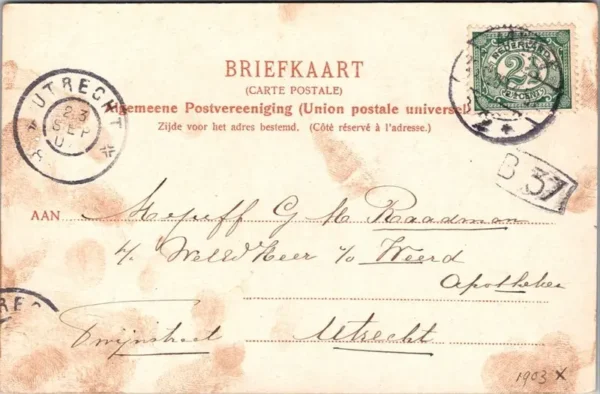 BRIEFKAART
(CARTE POSTALE)
Algemeene Postvereeniging (Union postale universelle)
Zijde voor het adres bestemd. (Côté réservé à l'adresse.)
UTRECHT
23
SEP
NEDERLAND
2½
CENT
B 37
AAN G M Raadman
p/a WelEdHeer v/d Weerd
Apotheker
Twijnstraat Utrecht
1903 X